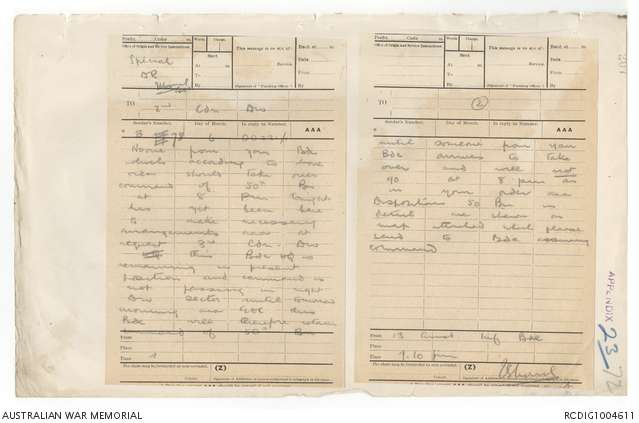 Prefix Code
Words
Charge
This message is on a/c of:
Recd. at
Office of Origin and Service Instructions.
Sent
Date
Special
At
Service.
From
DR
To
By
By
(Signature of "Franking Officer.")
TO
2nd Cdn Div
Sender's Number.
Day of Month.
In reply to Number.
AAA
6
Noone from your Bde
which according to
order should take over
command of 50th Bn
at 8 pm tonight
has yet been here
to make necessary
arrangements aaa at
request 2nd Cdn Div
this Bde HQ is
remaining in present
position and command is
not passing in right
Div sector until tomorrow
morning aaa GOC this
Bde will therefore retain
command of 50th Bn
From
Place
Time
The above may be forwarded as now corrected.
(Z)
Prefix Code
Words
Charge
This message is on a/c of:
Recd. at
Office of Origin and Service Instructions.
Sent
Date
At
Service.
From
To
By
By
(Signature of "Franking Officer.")
TO
(2)
Sender's Number.
Day of Month.
In reply to Number.
AAA
until someone from your
Bde arrives to take
over and will not
go at 8 pm as
in your order aaa
Dispositions 50 Bn in
detail are shown on
map attached which please
send to Bde
command
From 13 Aust Inf Bde
Place
Time 9.10 pm
The above may be forwarded as now corrected.
(Z)
APPENDIX
23
AUSTRALIAN WAR MEMORIAL
RCDIG1004611